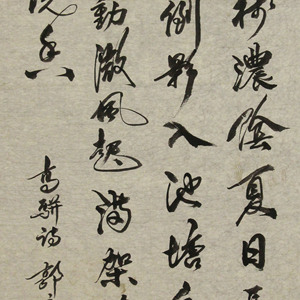 樹濃陰夏日長
倒影入池塘水
動微風起滿架
院香
高駢詩郭